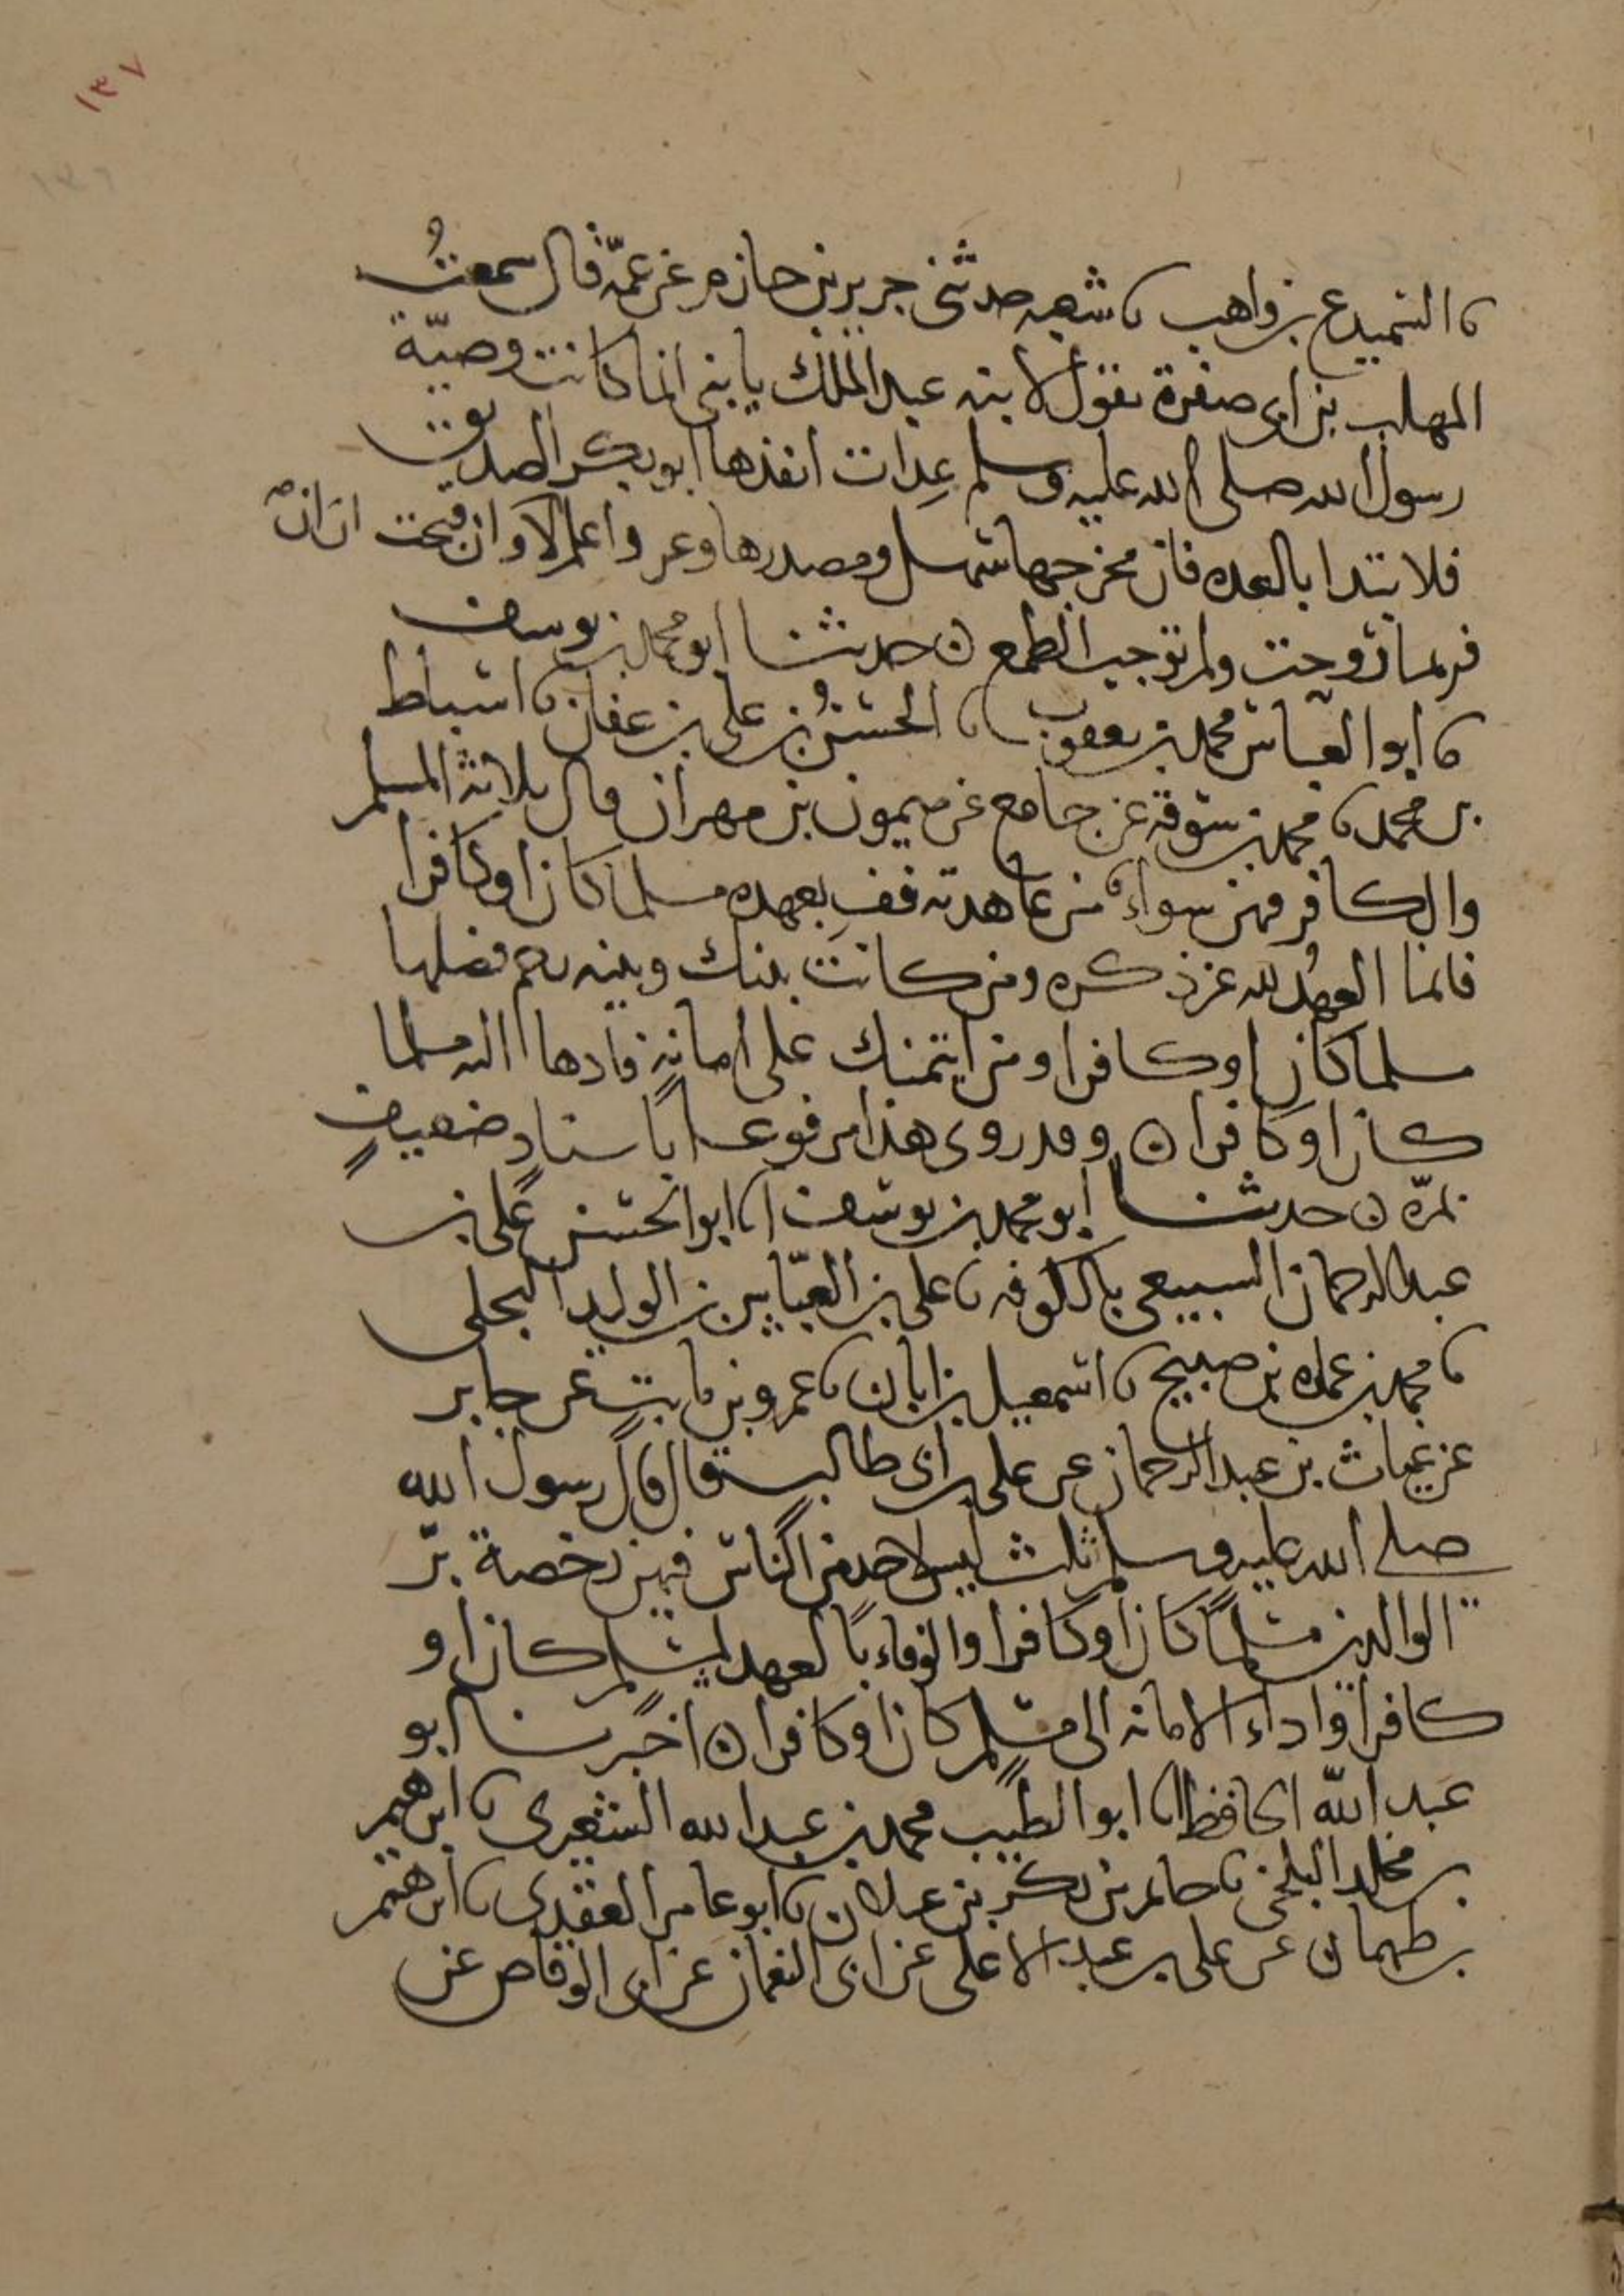 ١٣٧
١٣٦
نا السميدع بن واهب نا شعبه حدثني جرير بن حازم عن عمّه قال سمعتُ
المهلب بن ابي صفرة يقول لابنه عبد الملك يا بني انما كانت وصيّة
رسول الله صلى الله عليه وسلم عِدات انفذها ابو بكر الصديق
فلا تبتدا بالعده فان مخرجها سهل ومصدرها وعر واعلم ان لا وان قبحت
فربما زوحت ولم توجب الطمع ن حدثنا ابو محمد بن يوسف
نا ابو العباس محمد بن يعقوب نا الحسنُ بن علي بن عفان نا اسباط
بن محمد نا محمد بن سوقة عن جامع عن ميمون بن مهران قال ثلاثة المسلم
والكافر فيهن سواء من عاهدته ففِ بعهده مسلما كان او كافرا
فانما العهدُ لله عز ذكره ومن كانت بينك وبينه رحم فصلها
مسلما كان او كافرا ومن ايتمنك على امانةٍ فادها اليه مسلما
كان او كافرا ن وقد روي هذا مرفوعا باسنادٍ ضعيفٍ
بمرّه ن حدثنا ابو محمد بن يوسف انا ابو الحسن علي بن
عبد الرحمان السبيعي بالكوفه نا علي بن العبّاس بن الوليد البجلي
نا محمد بن عماره بن صبيح نا اسمعيل بن ابان نا عمرو بن ثابت عن جابر
عن غياث بن عبد الرحمان عن علي بن ابي طالب قال قال رسول الله
صلى الله عليه وسلم ثلث ليس لاحد من الناس فيهن رخصة برّ
الوالدين مسلمًا كان او كافرا والوفاء بالعهد لمسلم كان او
كافر واداء الامانه الى مسلم كان او كافر ن اخبرنا ابو
عبد الله الحافظ انا ابو الطيب محمد بن عبد الله الشعيري نا ابرهيم
بن مخلد البلخي نا حاتم بن بكر بن عيلان نا ابو عامر العقدي نا ابرهيم
بن طهمان عن علي بن عبد الاعلى عن ابي النعمان عن ابي الوقاص عن